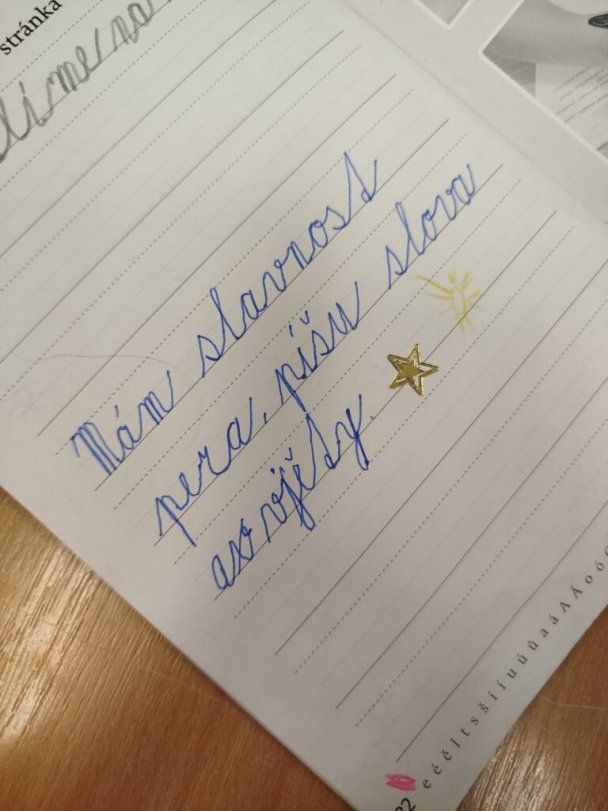 stránka
Mám slavnost
pera, píšu slova
a věty.
e é ě l t s š i í u ú ů a á A Á o ó